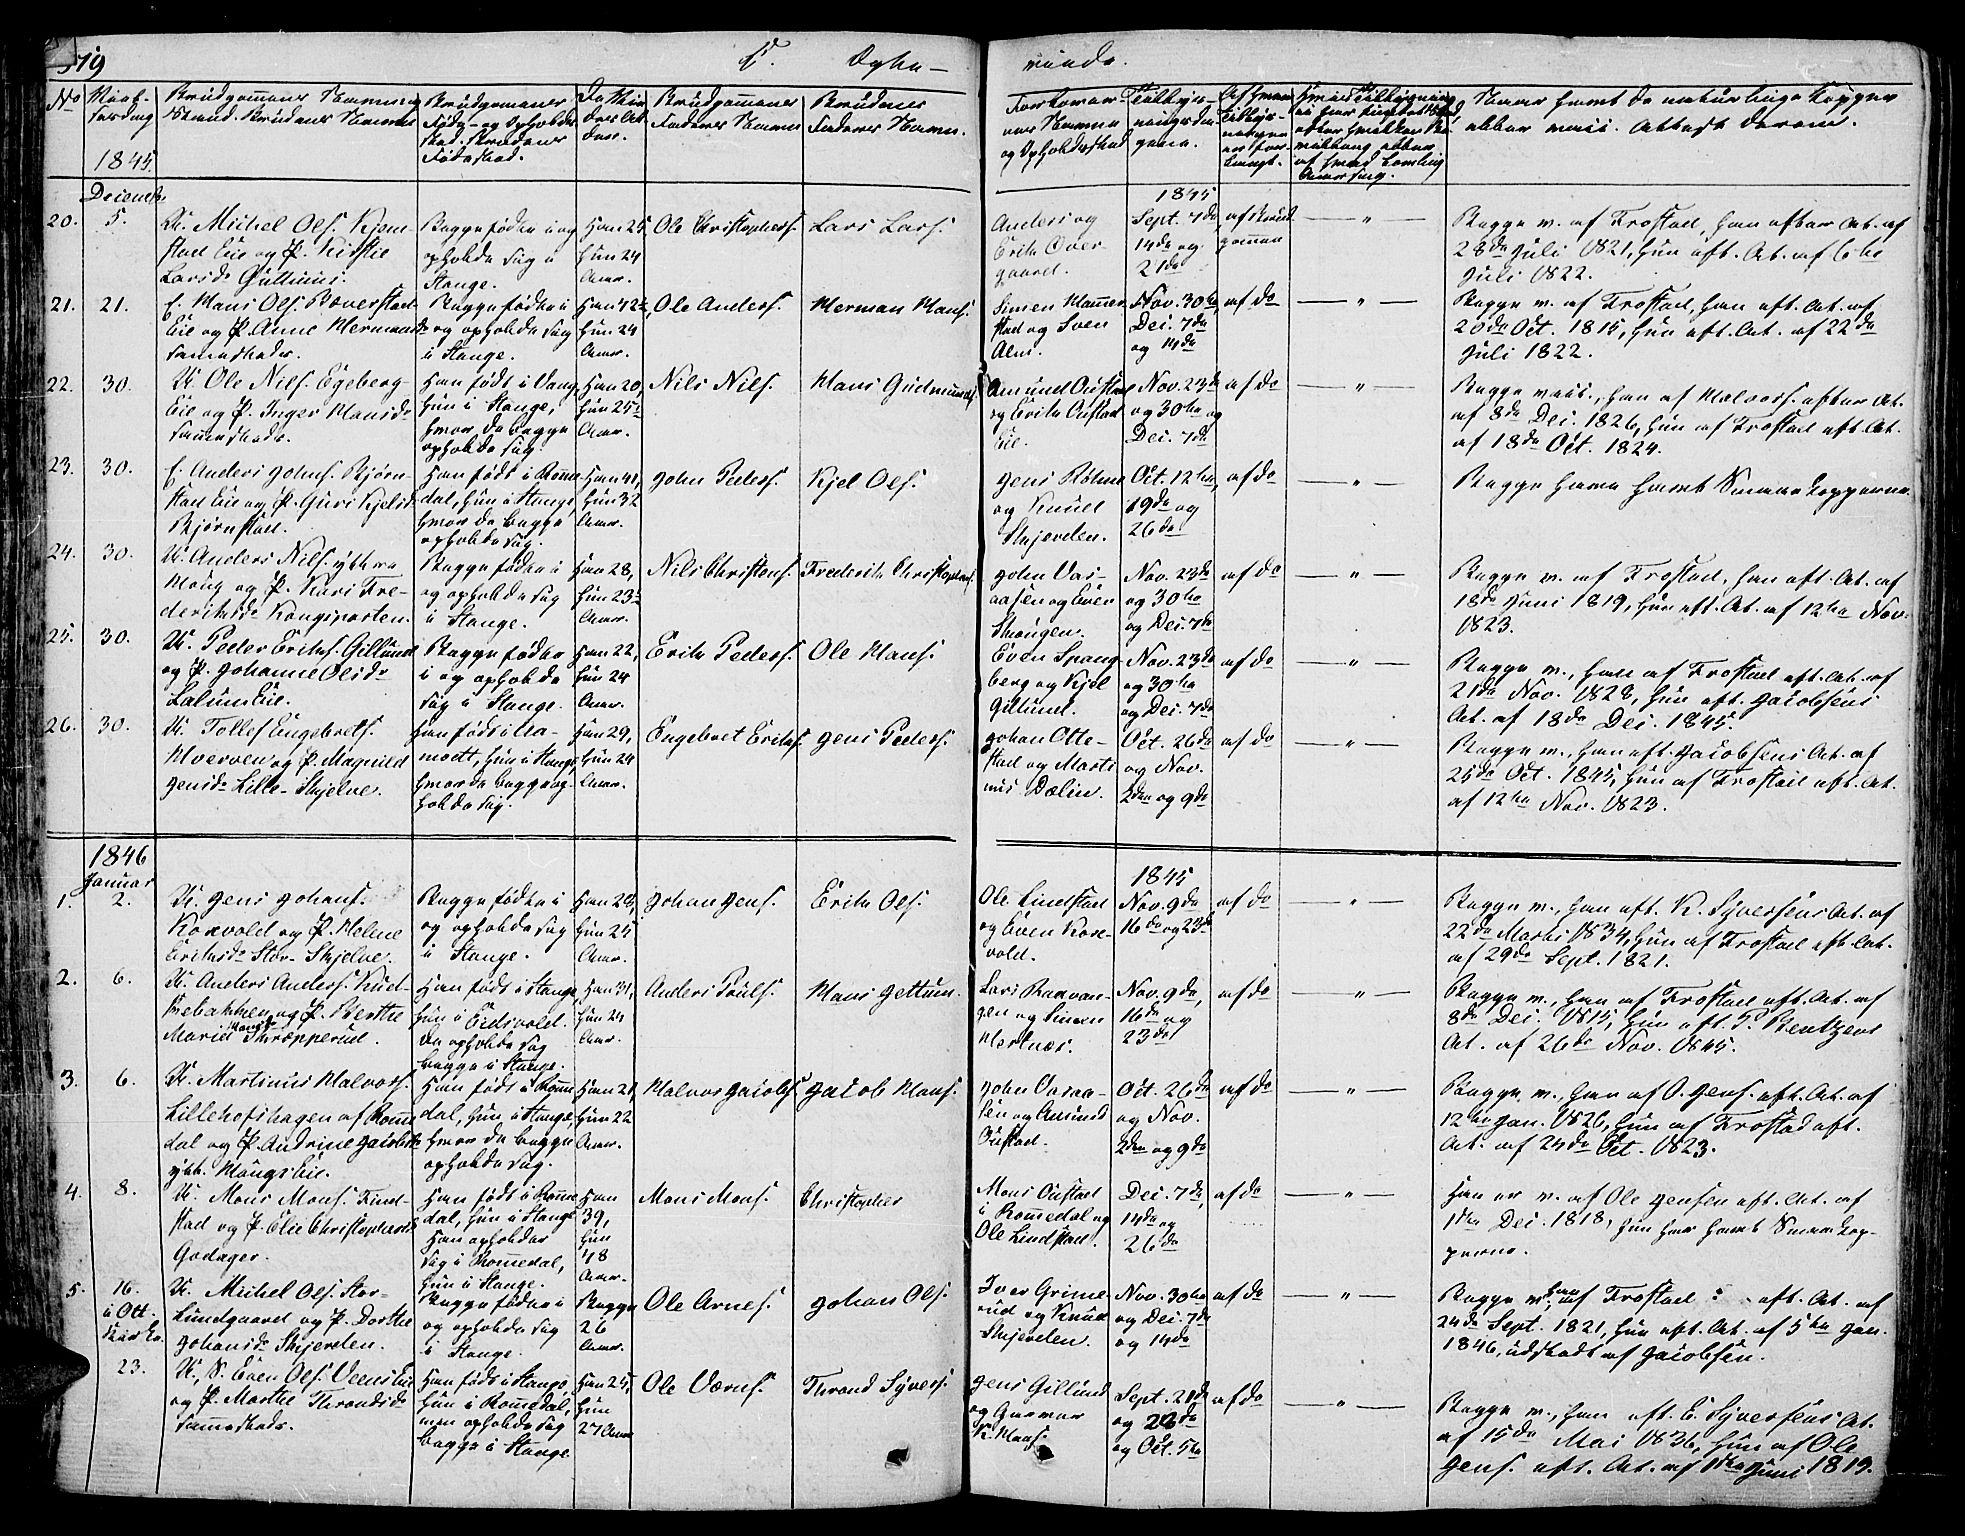 519
C. Ægte-
viede.
No
Viel-
sesdag
1845.
Brudgommens Navn og
Stand. Brudens Navn
Brudgommens
Føde- og Opholds-
sted. Brudens
Fødested.
Brudgommens
Faders Navn
Brudens
Faders Navn.
Forlover-
nes Navne
og Opholdssted
Tillys-
ningsda-
gene.
Naar havt de naturlige Kopper
eller vacc. Attest derom.
Decemb.
1845
20. 5.
U. Michel Ols. Kjem-
stad Eie og P. Kirstie
Larsdr Gillund.
Begge fødte i og
opholde sig i
Stange.
Han 25
Hun 24
Aar.
Ole Christophers.
Lars Lars.
Anders og
Erik Over-
gaard.
Sept. 7de
14de og
21de
af Brud-
gommen
— " —
Begge v. af Frostad, han efter At. af
28de Juli 1821, hun eft. At. af 6te
Juli 1822.
21. 21.
E. Hans Ols. Boverstad
Eie og P. Anne Hermansdr
sammesteds.
Begge fødte i
og opholde sig
i Stange.
Han 42½,
Hun 24
Aar.
Ole Anders.
Herman Hans.
Simen Hammer-
stad og Sven
Alm.
Nov. 30te,
Dec. 7de
og 14de
af do
— " —
Begge v. af Frostad, han eft. At. af
20de Oct. 1815, hun eft. At. af 22de
Juli 1822.
22. 30.
U. Ole Nils. Egeberg-
Eie og P. Inger Hansdr
sammesteds.
Han født i Vang,
hun i Stange,
hvor de begge
opholde sig.
Han 20,
Hun 25½
Aar.
Nils Nils.
Hans Gudmunds.
Amund Oustad
og Erik Oustad
Eie.
Nov. 23de
og 30te og
Dec. 7de
af do
— " —
Begge vacc., han af Halvors. efter At.
af 8de Dec. 1826, hun af Frostad eft. At.
af 18de Oct. 1824.
23. 30.
E. Anders Johns. Bjørn-
stad Eie og P. Guri Kjelsdr
Bjørnstad.
Han født i Romme-
dal, hun i Stange,
hvor de begge
opholde sig.
Han 41,
Hun 32
Aar.
John Peders.
Kjel Ols.
Jens Rølme
og Knud
Skjerden.
Oct. 12te,
19de og
26de
af do
— " —
Begge have havt Smaakopperne.
24. 30.
U. Anders Nils. ythre
Houg og P. Kari Fre-
deriksdr Kongsparten.
Begge fødte i
og opholde sig
i Stange.
Han 28,
Hun 23½
Aar.
Nils Christens.
Frederik Christophers.
John Vas-
aasen og Even
Skougen.
Nov. 23de
og 30te
og Dec. 7de
af do
— " —
Begge v. af Frostad, han eft. At. af
18de Juni 1819, hun eft. At. af 12te Nov.
1823.
25. 30.
U. Peder Eriks. Gillund
og P. Johanne Olsdr
Lalum Eie.
Begge fødte
i og opholde
sig i Stange.
Han 22,
Hun 24
Aar.
Erik Peders.
Ole Hans.
Even Spang-
berg og Kjel
Gillund.
Nov. 23de
og 30te
og Dec. 7de
af do
— " —
Begge v., han af Frostad eft. At. af
21de Nov. 1828, hun eft. Jacobsens
At. af 18de Dec. 1845.
26. 30.
U. Tollef Engebrets.
Hverven og P. Magnild
Jensdr Lille-Skjelve.
Han født i Aa-
modt, hun i Stange,
hvor de begge op-
holde sig.
Han 29,
Hun 24
Aar.
Engebret Eriks.
Jens Peders.
Johan Otte-
stad og Marti-
nus Dælin.
Oct. 26de
og Nov.
2den og 9de
af do
— " —
Begge v., han eft. Jacobsens At. af
25de Oct. 1845, hun af Frostad eft. At.
af 12te Nov. 1823.
1846
Januar
1845
1. 2.
U. Jens Johans.
Korvold og P. Helene
Eriksdr Stor-Skjelve.
Begge fødte i
og opholde sig
i Stange.
Hun 25
Aar.
Johan Jens.
Erik Ols.
Ole Lindstad
og Even Kors-
vold.
Nov. 9de
16de og 23de
af do
— " —
Begge v., han eft. K. Syversens At. af
22de Marts 1834, hun af Frostad eft. At.
af 29de Sept. 1821.
2. 6.
U. Anders Anders. Rud-
bakken og P. Berthe
Marie Hansdr Skræpperud.
Han født i Stange,
hun i Eidsvold.
De opholde sig
begge i Stange.
Han 31,
Hun 24
Aar.
Anders Pouls.
Hans Jettum.
Lars Ravan-
gen og Simen
Hertnæs.
Nov. 9de,
16de og
23de
af do
— " —
Begge v., han af Frostad eft. At. af
8de Dec. 1815, hun eft. P. Bentzens
At. af 26de Nov. 1845.
3. 6.
U. Martinus Halvors.
Lillehofshagen af Romme-
dal og P. Andrine Jacobsdr
ytt. Hougs Eie.
Han født i Romme-
dal, hun i Stange,
hvor de begge
opholde sig.
Han 21,
Hun 22
Aar.
Halvor Jacobs.
Jacob Hans.
John Vasaa-
sen og Amund
Oustad.
Oct. 26de
og Nov.
2den og 9de
af do
— " —
Begge v., han af O. Jens. eft. At. af
12te Jan. 1826, hun af Frostad eft.
At. af 24de Oct. 1823.
4. 8.
U. Mons Mons. Find-
stad og P. Elie Christophersdr
Godager.
Han født i Romme-
dal, hun i Stange
Han opholder
sig i Rommedal,
hun i Stange.
Han
39,
Hun
48
Aar.
Mons Mons.
Christopher
Mons Oustad
i Rommedal og
Ole Lindstad.
Dec. 7de,
14de og
26de
af do
— " —
Han er v. af Ole Jensen eft. At. af
1ste Dec. 1818, hun har havt Smaakop-
perne.
5. 16.
i Ott.
Kirke.
U. Michel Ols. Stor-
Lundgaard og P. Dorthe
Johansdr Skjerden.
Begge fødte i
og opholde sig
i Stange.
Begge
26
Aar.
Ole Arnes.
Johan Ols.
Iver Grime-
rud og Knud
Skjerden.
Nov. 30te
og Dec. 7de
og 14de
af do
— " —
Begge v., han af Frostad eft. At. af
24de Sept. 1821, hun eft. At. af 5te Jan.
1846, udstedt af Jacobsen.
23.
U., S. Even Ols. Veens Eie
og P. Marthe Throndsdr
sammesteds.
Han født i Stange,
hun i Romedal,
men opholde sig
begge i Stange
Han 25,
Hun
27 Aar
OleVærns.
Thrond Syvers.
Jens Gillund
og Gunmar
K. Hans.
Sept. 21de
og 28de
og Oct. 5te
af do
— " —
Begge v., han eft. E. Syversens At.
af 15de Mai 1836, hun af Ole
Jens. eft. At. af 1ste Juni 1819.